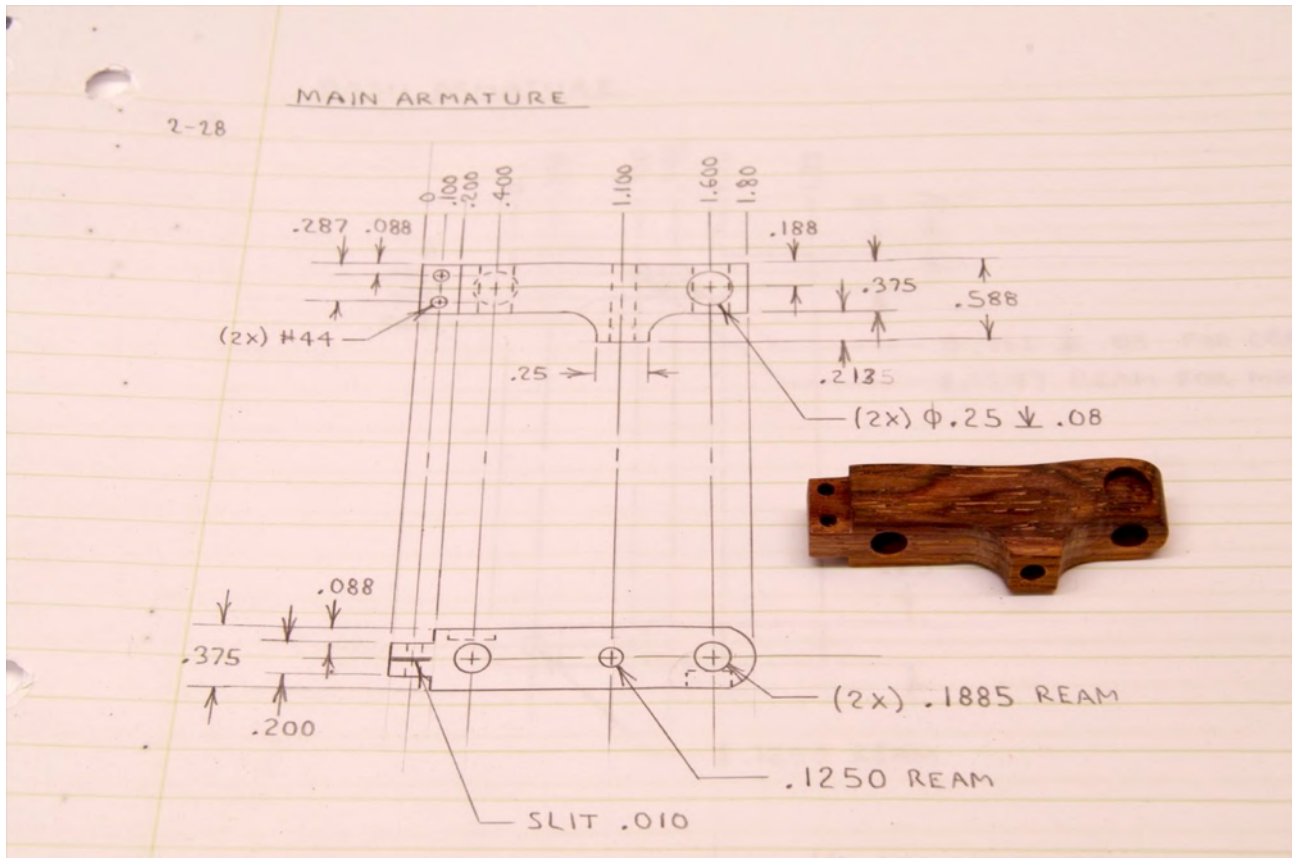 MAIN ARMATURE
2-28
0 .100 .200 .400 1.100 1.600 1.80
.287 .088
.188
.375
.588
(2X) #44
.25
.2135
(2X) Φ.25 ↧ .08
.088
.375
.200
(2X) .1885 REAM
.1250 REAM
SLIT .010